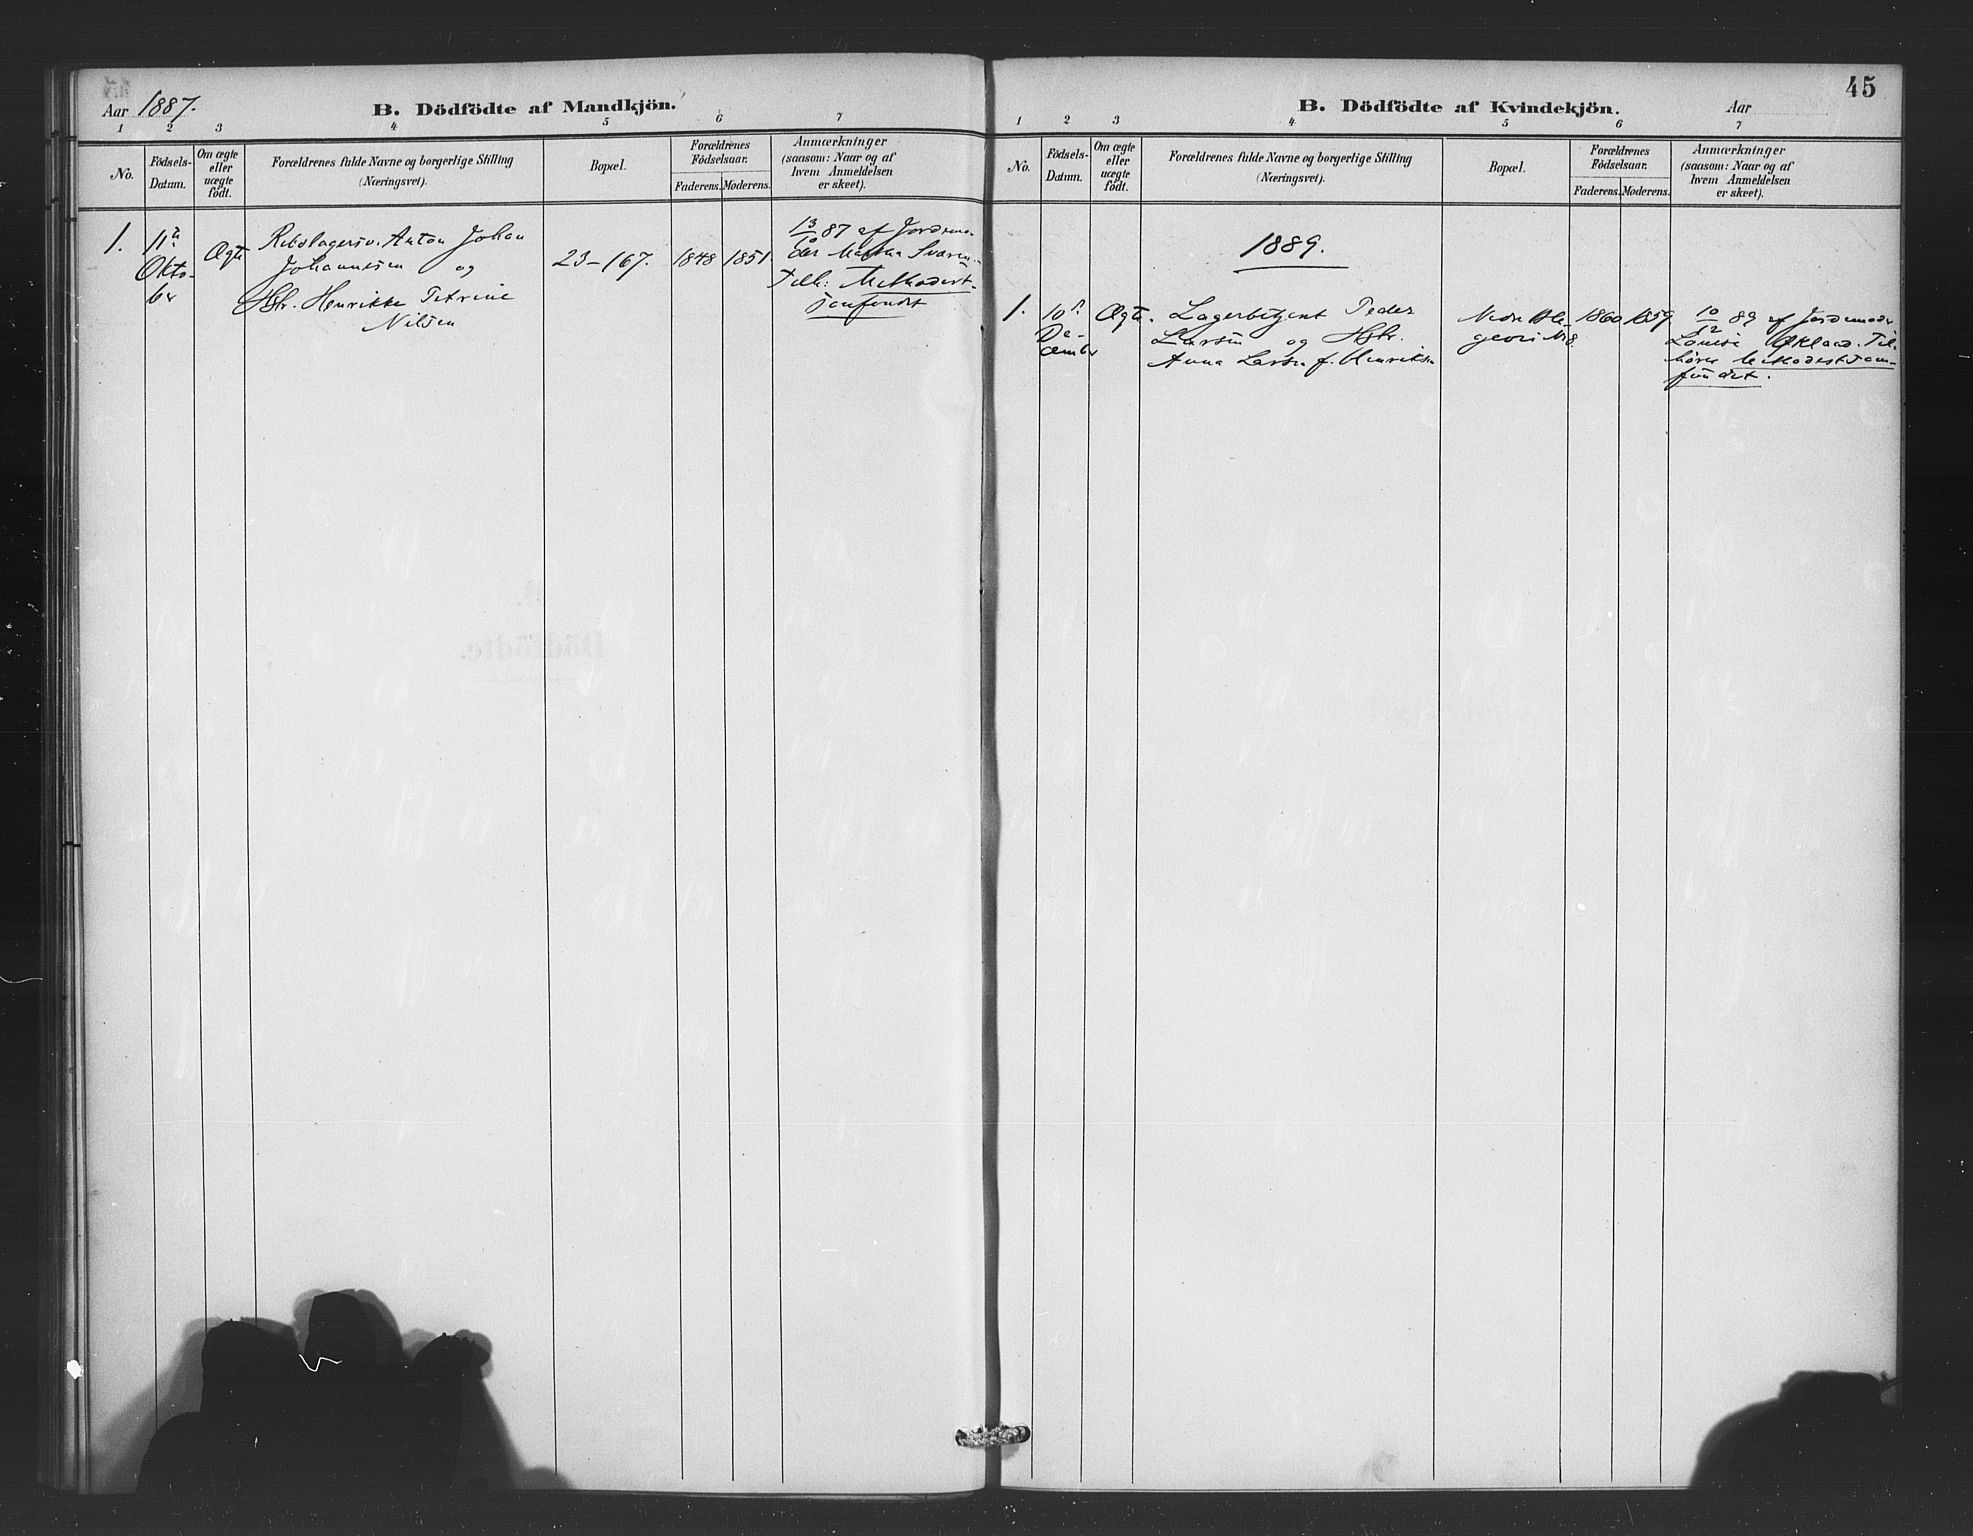 Aar 1887.
B. Dödfödte af Mandkjön.
1 2 3 4 5 6 7
No.
Födsels-
Datum.
Om ægte
eller
uægte
födt.
Forældrenes fulde Navne og borgerlige Stilling
(Næringsvei).
Bopæl.
Forældrenes
Födselsaar.
Faderens. Moderens.
Anmærkninger
(saasom: Naar og af
hvem Anmeldelsen
er skeet).
1.
11te
Okto-
ber
Ægte
Anton Johan
Johannesen og
Hstr. Henrikke Petrine
Nilsen
23-167.
1848 1851.
13/10 87 af Jordemo-
der Martha
Tilh: Methodist-
samfundet
45
B. Dödfödte af Kvindekjön.
Aar
1 2 3 4 5 6 7
No.
Födsels-
Datum.
Om ægte
eller
uægte
födt.
Forældrenes fulde Navne og borgerlige Stilling
(Næringsvei).
Bopæl.
Forældrenes
Födselsaar.
Faderens. Moderens.
Anmærkninger
(saasom: Naar og af
hvem Anmeldelsen
er skeet).
1889.
1.
10de
De-
cember
Ægte.
Lagerbetjent Peder
Larsen og Hstr.
Anna Larsen f. Henriksen
Nedre Ble-
gevei No 8
1860 1859
10/12 89 af Jordemoder
Louise Økland. Til-
hører Methodistsam-
fundet.